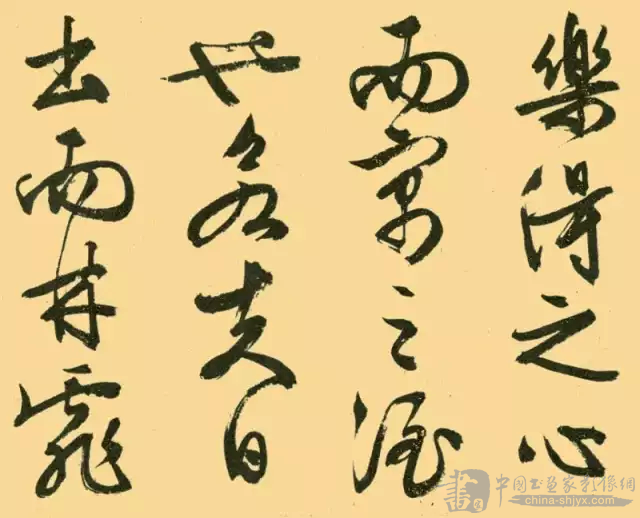 樂得之心
而寓之酒
也若夫日
出而林霏
中国书画家影像網
china-shjyx.com